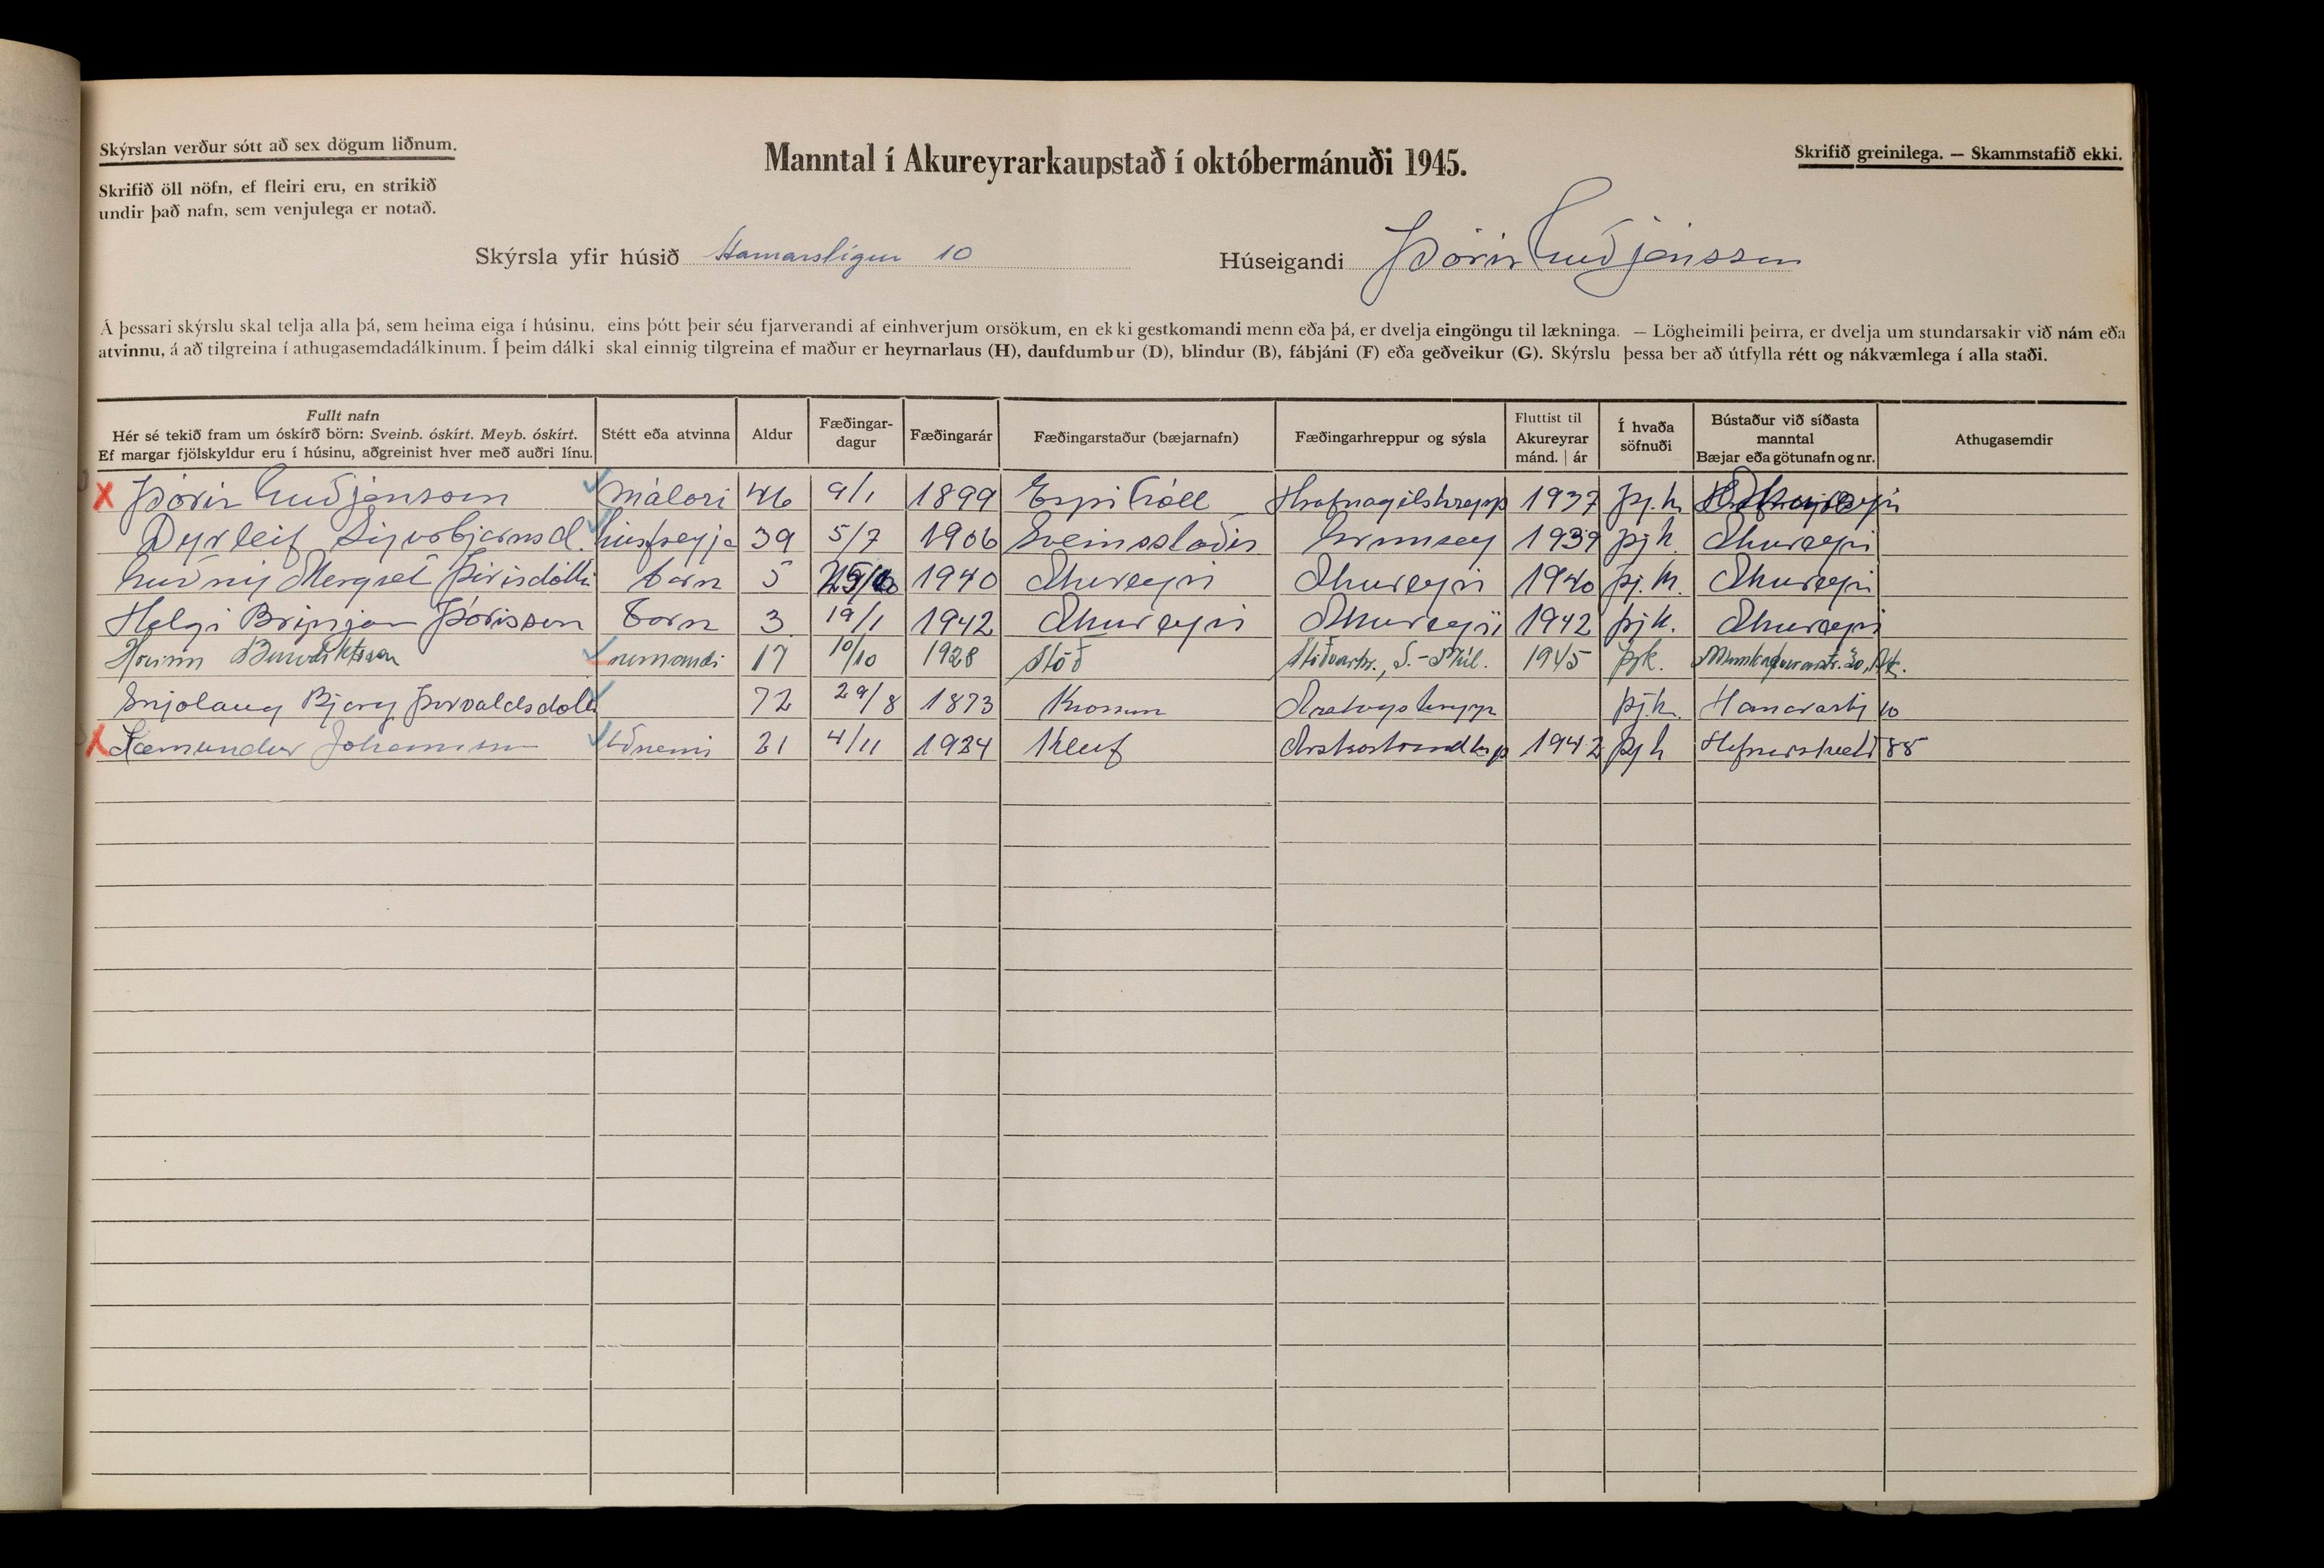 Skýrslan verður sótt að sex dögum liðnum.
Manntal í Akureyrarkaupstað í októbermánuði 1945.
Skrifið greinilega. — Skammstafið ekki.
Skrifið öll nöfn, ef fleiri eru, en strikið
undir það nafn, sem venjulega er notað.
Skýrsla yfir húsið Hamarstígur 10
Húseigandi Þórir Guðjónsson
Á þessari skýrslu skal telja alla þá, sem heima eiga í húsinu, eins þótt þeir séu fjarverandi af einhverjum orsökum, en ekki gestkomandi menn eða þá, er dvelja eingöngu til lækninga. — Lögheimili þeirra, er dvelja um stundarsakir við nám eða
atvinnu, á að tilgreina í athugasemdadálkinum. Í þeim dálki skal einnig tilgreina ef maður er heyrnarlaus (H), daufdumbur (D), blindur (B), fábjáni (F) eða geðveikur (G). Skýrslu þessa ber að útfylla rétt og nákvæmlega í alla staði.
Fullt nafn
Hér sé tekið fram um óskírð börn: Sveinb. óskírt. Meyb. óskírt.
Ef margar fjölskyldur eru í húsinu, aðgreinist hver með auðri línu.
Stétt eða atvinna
Aldur
Fæðingar-
dagur
Fæðingarár
Fæðingarstaður (bæjarnafn)
Fæðingarhreppur og sýsla
Fluttist til
Akureyrar
mánd. | ár
Í hvaða
söfnuði
Bústaður við síðasta
manntal
Bæjar eða götunafn og nr.
Athugasemdir
X Þórir Guðjónsson málari 46 9/1 1899 Espihóll Hrafnagilshrepp 1937 þj.k. Akureyri
Dyrleif Sigurbjörnsd. húsfreyja 39 5/7 1906 Sveinsstaðir Grímsey 1939 þj k. Akureyri
Guðný Margrét Þórisdótti barn 5 1940 Akureyri Akureyri 1940 þj. k. Akureyri
Helgi Brynjar Þórisson barn 3 19/1 1942 Akureyri Akureyri 1942 þj k. Akureyri
Hreinn Benediktsson nemandi 17 10/10 1928 Stöð Stöðvarhr., S.-Múl. 1945 þjk. Munkaþverárstr. 30, Ak.
Snjolaug Bjorg Þorvaldsdotti 72 29/8 1873 Krossum þj.k. Hamarsstíg 10
X Sæmundur Johannsson Iðnemi 21 4/11 1924 Kleif Arskostrandhrp 1942 þj k 85